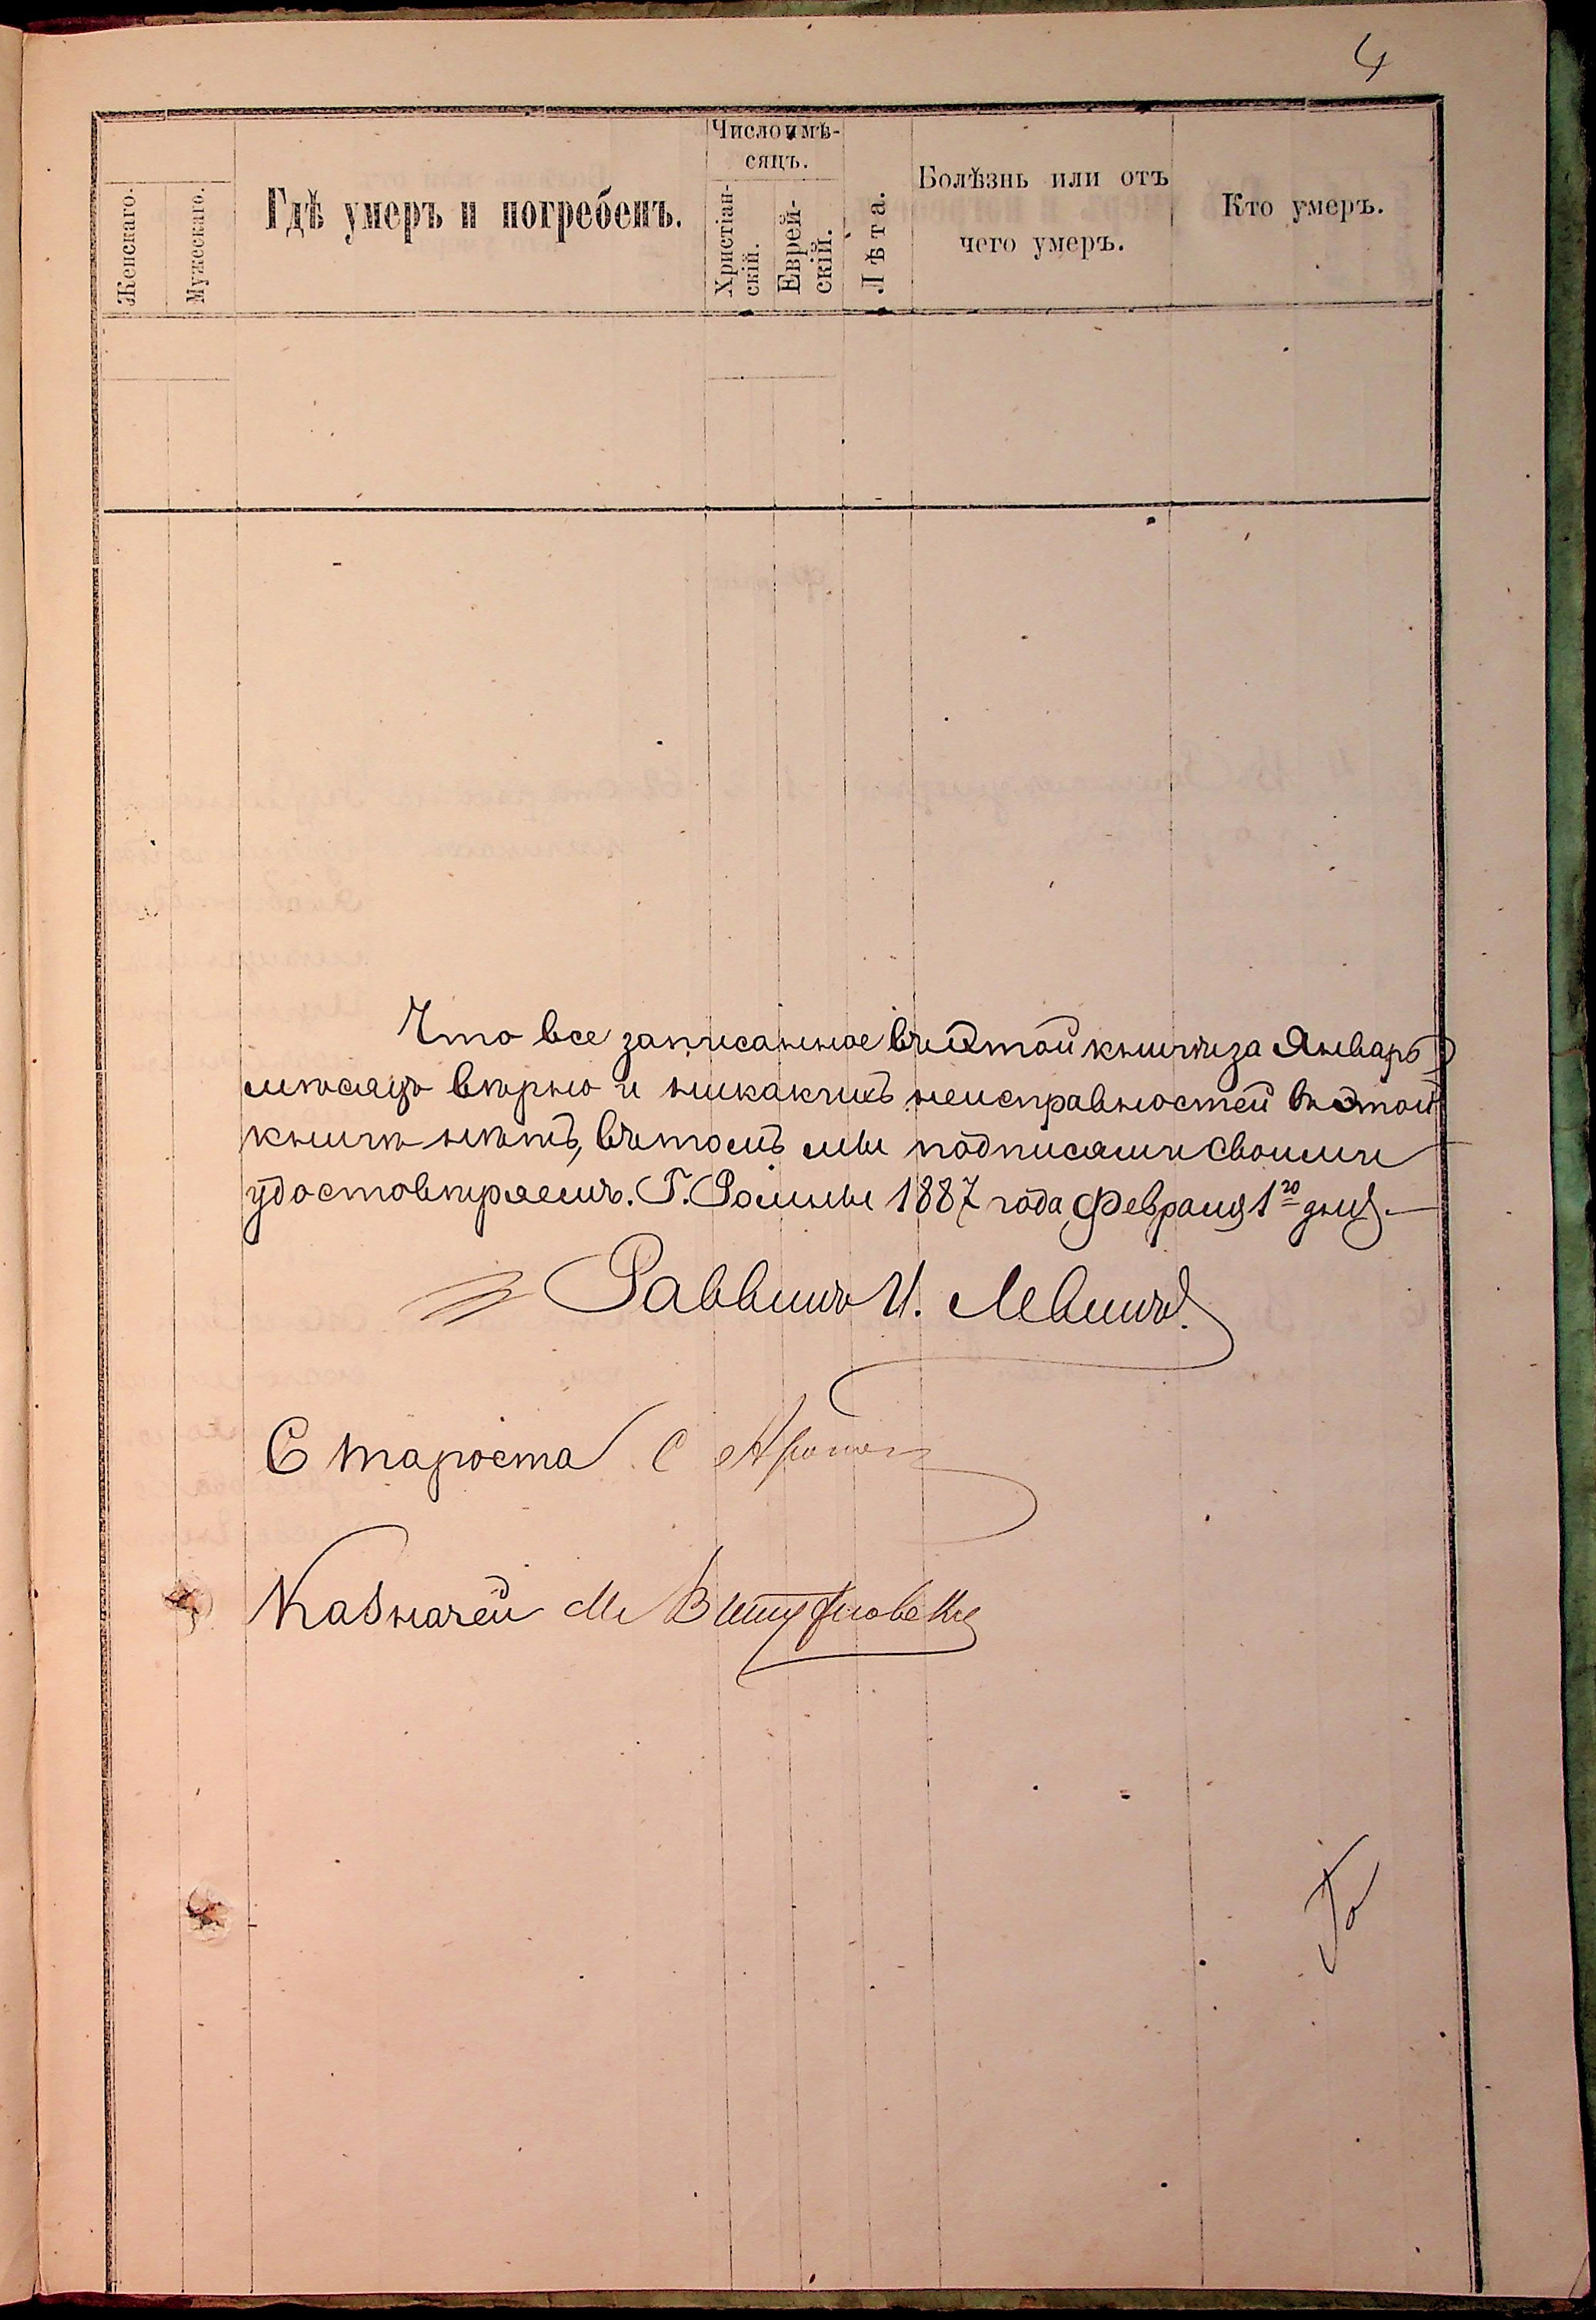 4
Женскаго.
Мужескаго.
Гдѣ умеръ и погребенъ.
Число и мѣ-
сяцъ.
Христіан-
скій.
Еврей-
скій.
Лѣта.
Болѣзнь или отъ
чего умеръ.
Кто умеръ.
Что все записанное въ этой книги за Январь
мѣсяцъ вѣрно и никакихъ неисправностей въ этой
книги нѣтъ, въ томъ мы подписями своими
удостовѣряемъ. Г. Ромны 1887 года Февраля 1го дня.—
Раввинъ И. Левинъ.
Староста С
Казначей М